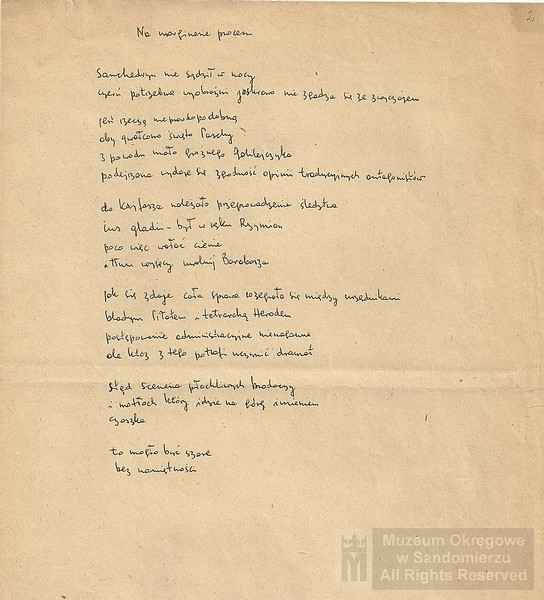 2.
Na marginesie procesu
Sanchedryn nie sądził w nocy
czerń potrzebna wyobraźni jaskrawo nie zgadza się ze zwyczajem
jest rzeczą nieprawdopodobną
aby gwałcono święto Paschy
z powodu mało groźnego Galilejczyka
podejrzana wydaje się zgodność opinii tradycyjnych antagonistów
do Kajfasza należało przeprowadzenie śledztwa
ius gladii – był w ręku Rzymian
po co więc wołać cienie
i tłum wyjący uwolnij Barabasza
jak się zdaje cała sprawa rozegrała się między urzędnikami
bladym Piłatem i tetrarchą Herodem
postępowanie administracyjne nienaganne
ale któż z tego potrafi uczynić dramat
Stąd sceneria płochliwych brodaczy
i motłoch który idzie na górę imieniem
czaszka
to mogło być szare
bez namiętności
Muzeum Okręgowe
w Sandomierzu
All Rights Reserved